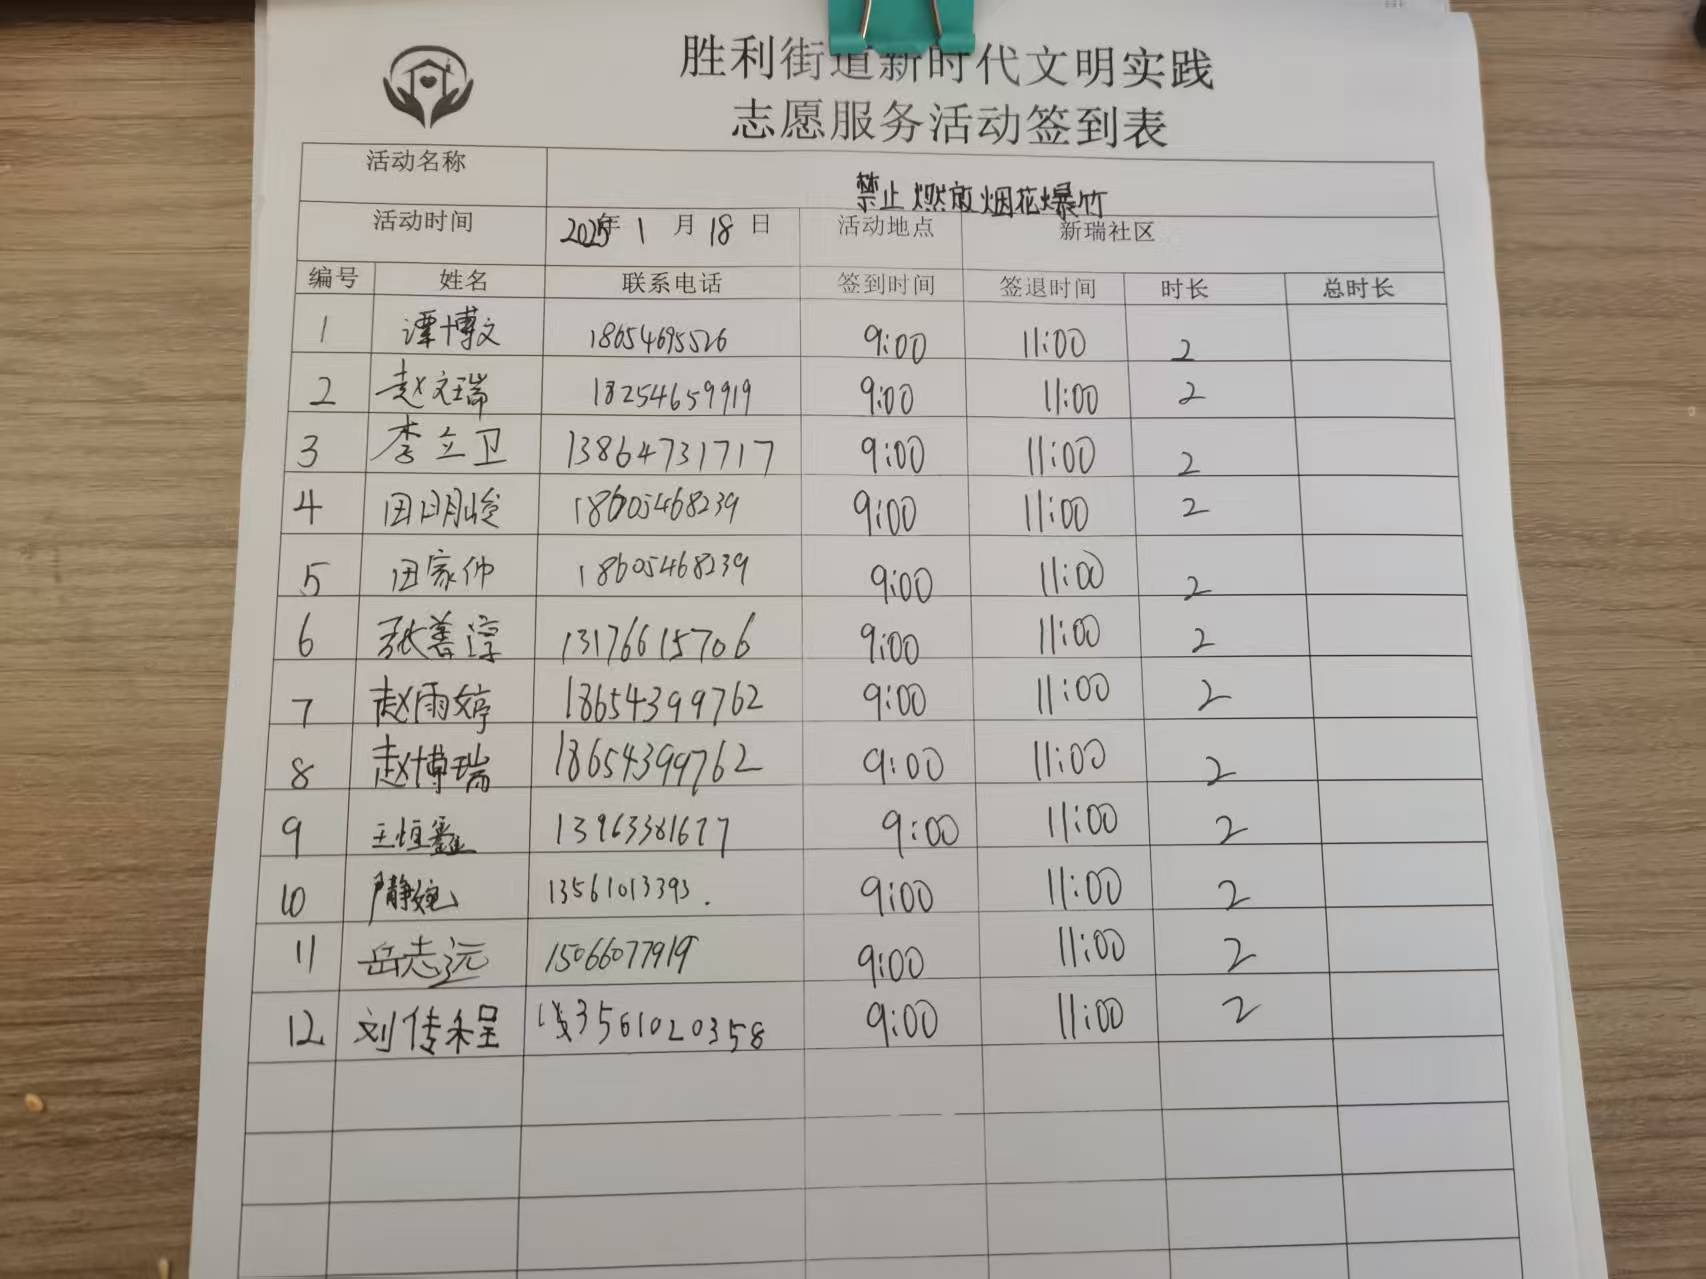 胜利街道新时代文明实践
志愿服务活动签到表
活动名称 禁止燃放烟花爆竹
活动时间 2025年 1 月 18 日 活动地点 新瑞社区
编号 姓名 联系电话 签到时间 签退时间 时长 总时长
1 谭博文 18654695526 9:00 11:00 2
2 赵文瑞 18254659919 9:00 11:00 2
3 李立卫 13864731717 9:00 11:00 2
4 田明峻 18605468239 9:00 11:00 2
5 田家仲 18605468239 9:00 11:00 2
6 张善淳 13176615706 9:00 11:00 2
7 赵雨婷 18654399762 9:00 11:00 2
8 赵博瑞 18654399762 9:00 11:00 2
9 王恒鑫 13963381677 9:00 11:00 2
10 静婉 13561013393. 9:00 11:00 2
11 岳志远 15066077919 9:00 11:00 2
12 刘传程 13561020358 9:00 11:00 2